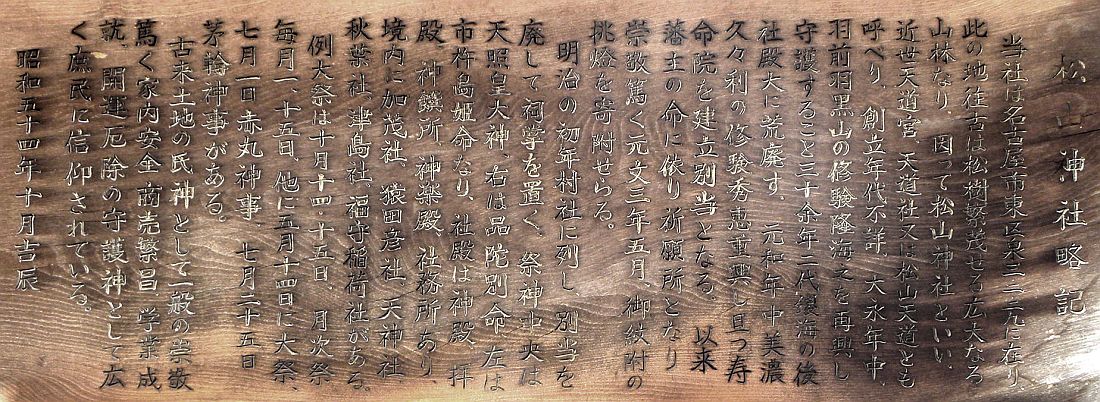 松山神社略記
当社は名古屋市東区泉三二二九に在り
此の地往古は松樹繁茂せる広大なる
山林なり、因って松山神社といい、
近世天道宮、天道社又は松山天道とも
呼べり、創立年代不詳、大永年中、
羽前羽黒山の修験隆海之を再興し
守護すること三十余年二代録海の後
社殿大に荒廃す。元和年中美濃
久々利の修験秀恵重興し且つ寿
命院を建立別当となる。以来
藩主の命に依り祈願所となり
崇敬篤く元文三年五月、御紋附の
挑燈を寄附せらる。
明治の初年村社に列し、別当を
廃して祠掌を置く、祭神中央は
天照皇大神、右は品陀別命、左は
市杵島姫命なり、社殿は神殿、拝
殿、神饌所、神楽殿、社務所あり、
境内に加茂社、猿田彦社、天神社、
秋葉社、津島社、福守稲荷社がある。
例大祭は十月十四・十五日、月次祭
毎月一、十五日、他に五月十四日に大祭、
七月一日赤丸神事、七月二十五日
茅輪神事がある。
古来土地の氏神として一般の崇敬
篤く家内安全、商売繁昌、学業成
就、開運厄除の守護神として広
く庶民に信仰されている。
昭和五十四年十月吉辰